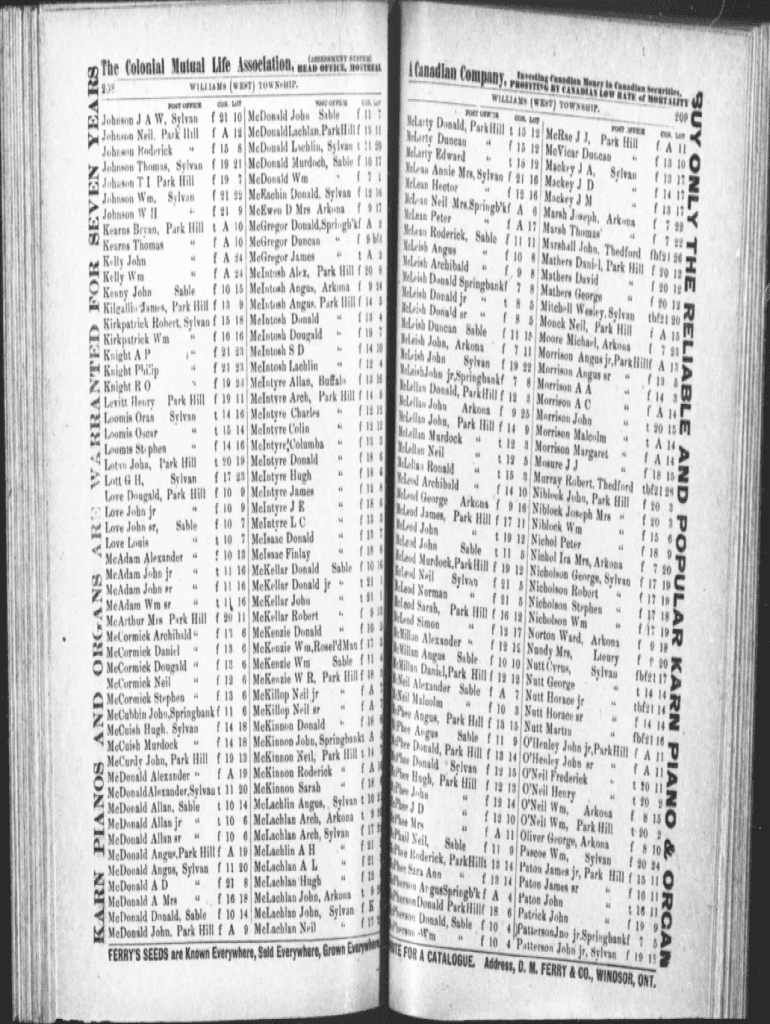 The Colonial Mutual Life Association, (ASSESSMENT SYSTEM) HEAD OFFICE, MONTREAL
208 WILLIAMS (WEST) TOWNSHIP.
KARN PIANOS AND ORGANS ARE WARRANTED FOR SEVEN YEARS
POST OFFICE CON. LOT
Johnson J A W, Sylvan f 21 10
Johnson Neil, Park Hill f A 12
Johnson Roderick " f 15 8
Johnson Thomas, Sylvan f 19 21
Johnson T I Park Hill f 19 7
Johnson Wm, Sylvan f 21 22
Johnson W H " f 21 9
Kearns Bryan, Park Hill t A 10
Kearns Thomas " f A 10
Kelly John " f A 24
Kelly Wm " f A 24
Kenny John Sable f 10 15
Kilgallin James, Park Hill f 13 9
Kirkpatrick Robert, Sylvan f 15 18
Kirkpatrick Wm " f 16 16
Knight A P " f 21 23
Knight Philip " f 21 23
Knight R O " f 19 23
Levitt Henry Park Hill f 19 11
Loomis Oran Sylvan t 14 16
Loomis Oscar " t 15 14
Loomis Stephen " f 14 16
Lotan John, Park Hill t 20 19
Lott G H, Sylvan f 17 23
Love Dougald, Park Hill f 10 9
Love John jr " f 10 9
Love John sr, Sable f 10 7
Love Louis " t 10 7
McAdam Alexander " f 10 13
McAdam John jr " t 11 16
McAdam John sr " f 11 16
McAdam Wm sr " t 11 16
McArthur Mrs Park Hill f 20 11
McCormick Archibald " f 13 6
McCormick Daniel " f 13 6
McCormick Dougald " f 13 6
McCormick Neil " f 12 6
McCormick Stephen " f 13 6
McCubbin John, Springbank f 11 6
McCuish Hugh. Sylvan f 14 18
McCuish Murdock " f 14 18
McCurdy John, Park Hill f 19 13
McDonald Alexander " f A 19
McDonald Alexander, Sylvan t 11 20
McDonald Allan, Sable t 10 14
McDonald Allan jr " t 10 6
McDonald Allan sr " f 10 6
McDonald Angus, Park Hill f A 19
McDonald Angus, Sylvan f 11 20
McDonald A D " f 21 8
McDonald A Mrs " f 16 18
McDonald Donald, Sable f 10 14
McDonald John, Park Hill f A 9
POST OFFICE CON. LOT
McDonald John Sable f 11 7
McDonald Lachlan, Park Hill f 13 11
McDonald Lachlin, Sylvan t 21 20
McDonald Murdoch, Sable f 10 17
McDonald Wm " f 7 1
McEachin Donald, Sylvan f 12 16
McEwen D Mrs Arkona f 9 17
McGregor Donald, Springb'k f A 2
McGregor Duncan " f 9
McGregor James " t A 2
McIntosh Alex, Park Hill f 20 8
McIntosh Angus, Arkona f 9 24
McIntosh Angus. Park Hill f 14 5
McIntosh Donald " f 13 4
McIntosh Dougald " f 19 7
McIntosh S D " f 14 10
McIntosh Lachlin " f 12 4
McIntyre Allan, Buffalo f 13 16
McIntyre Arch, Park Hill f 14 6
McIntyre Charles " f 12 12
McIntyre Colin " f 12 12
McIntyre Columba " f 13 3
McIntyre Donald " f 18 6
McIntyre Hugh " f 18
McIntyre James " f 12 8
McIntyre J E " f 18 6
McIntyre L C " f 13 3
McIsaac Donald " f 13 7
McIsaac Finlay " f 18 8
McKellar Donald Sable f 10 16
McKellar Donald jr " t 21
McKellar John " t 21
McKellar Robert " f 9 13
McKenzie Donald " f 10 5
McKenzie Wm, Rosel'd Man f 17
McKenzie Wm Sable f 11 4
McKenzie W R, Park Hill f 18
McKillop Neil jr " f A
McKillop Neil sr " f A
McKinnon Donald " f 18
McKinnon John, Springbank t A
McKinnon Neil, Park Hill t 14
McKinnon Roderick " f A
McKinnon Sarah " f 18
McLachlin Angus, Sylvan t 10
McLachlan Arch, Arkona t 9
McLachlan Arch, Sylvan f 17
McLachlin A H " f 21
McLachlan A L " f 21
McLachlan Hugh " f 12
McLachlan John, Arkona t 9
McLachlan John, Sylvan f K
McLachlan Neil " f 17
FERRY'S SEEDS are Known Everywhere, Sold Everywhere, Grown Everywhere.
A Canadian Company, Investing Canadian Money in Canadian Securities, PROFITING BY CANADIAN LOW RATE of MORTALITY
WILLIAMS (WEST) TOWNSHIP. 209
POST OFFICE CON. LOT
McLarty Donald, Park Hill t 15 12
McLarty Duncan " f 15 12
McLarty Edward " t 15 12
McLean Annie Mrs, Sylvan f 21 16
McLean Hector " f 12 16
McLean Neil Mrs, Springb'k f A 6
McLean Peter " f A 17
McLean Roderick, Sable f 11 11
McLeish Angus " f 10 8
McLeish Archibald " f 9 8
McLeish Donald Springbank f 7 8
McLeish Donald jr " t 8 5
McLeish Donald sr " f 8 5
McLeish Duncan Sable f 11 15
McLeish John, Arkona f 7 11
McLeish John Sylvan f 19 22
McLeish John jr, Springbank f 7 8
McLellan Donald, Park Hill f 12 3
McLellan John Arkona f 9 25
McLellan John, Park Hill f 14 9
McLellan Murdock " t 12 3
McLellan Neil " t 12 5
McLellan Ronald " t 15 3
McLeod Archibald " f 14 10
McLeod George Arkona f 9 16
McLeod James, Park Hill f 17 11
McLeod John " t 19 12
McLeod John Sable t 11 5
McLeod Murdock, Park Hill f 19 12
McLeod Neil Sylvan f 21 5
McLeod Norman " f 21 5
McLeod Sarah, Park Hill f 16 12
McLeod Simon " f 12 17
McMillan Alexander " f 12 15
McMillan Angus Sable f 10 10
McMillan Daniel, Park Hill f 12 12
McNeil Alexander Sable f A 7
McNeil Malcolm " f 10 3
McPhee Angus, Park Hill f 13 15
McPhee Angus Sable f 11 9
McPhee Donald, Park Hill f 13 14
McPhee Donald Sylvan f 12 15
McPhee Hugh, Park Hill f 12 13
McPhee John " f 12 14
McPhee J D " f 12 10
McPhee Mrs " f A 11
McPhail Neil, Sable f 11 9
McPhee Roderick, Park Hill t 13 14
McPhee Sara Ann " f 13 14
McPherson Angus Springb'k f A 4
McPherson Donald Park Hill f 18 6
McPherson Donald, Sable f 10 4
McPherson Wm " f 10 4
POST OFFICE CON. LOT
McRae J J, Park Hill f A 11
McVicar Duncan " f 13 10
Mackey J A, Sylvan f 13 17
Mackey J D " f 14 17
Mackey J M " f 13 17
Marsh Joseph, Arkona f 7 22
Marsh Thomas " f 7 22
Marshall John, Thedford fbf 21 26
Mathers Daniel, Park Hill f 20 12
Mathers David " f 20 12
Mathers George " f 20 12
Mitchell Wesley, Sylvan tbf 21 20
Monck Neil, Park Hill f A 15
Moore Michael, Arkona f 7 23
Morrison Angus jr, Park Hill f A 13
Morrison Angus sr " f 13 5
Morrison A A " f 14 3
Morrison A C " f A 14
Morrison John " t 20 15
Morrison Malcolm " t A 14
Morrison Margaret " f A 14
Mosure J J " f 18 15
Murray Robert, Thedford tbf 21 28
Niblock John, Park Hill f 20 3
Niblock Joseph Mrs " f 20 3
Niblock Wm " f 15 6
Nichol Peter " f 18 9
Nichol Ira Mrs, Arkona f 7 20
Nicholson George, Sylvan f 17 19
Nicholson Robert " f 17 19
Nicholson Stephen " f 17 18
Nicholson Wm " f 17 19
Norton Ward, Arkona f 9 18
Nundy Mrs, Lieury f 20
Nutt Cyrus, Sylvan fbf 21 17
Nutt George " t 14 14
Nutt Horace jr " tbf 21 14
Nutt Horace sr " f 14 14
Nutt Martin " fbf 21 16
O'Henley John jr, Park Hill f A 11
O'Henley John sr " f A 11
O'Neil Frederick " t 20 11
O'Neil Henry " t 20 2
O'Neil Wm, Arkona f 8 15
O'Neil Wm, Park Hill t 20 2
Oliver George, Arkona f 8 10
Pascoe Wm, Sylvan f 20 24
Paton James jr, Park Hill f 15 11
Paton James sr " f 16 11
Paton John " t 16 11
Patrick John " f 19 9
Patterson Jno jr. Springbank f 7 5
Patterson John jr, Sylvan f 19 18
BUY ONLY THE RELIABLE AND POPULAR KARN PIANO & ORGAN
FOR A CATALOGUE. Address, D. M. FERRY & CO., WINDSOR, ONT.